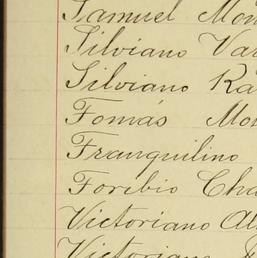 Samuel Mon
Silviano Var
Silviano Ra
Tomás Mon
Tranquilino
Toribio Cha
Victoriano Al
Victoriano